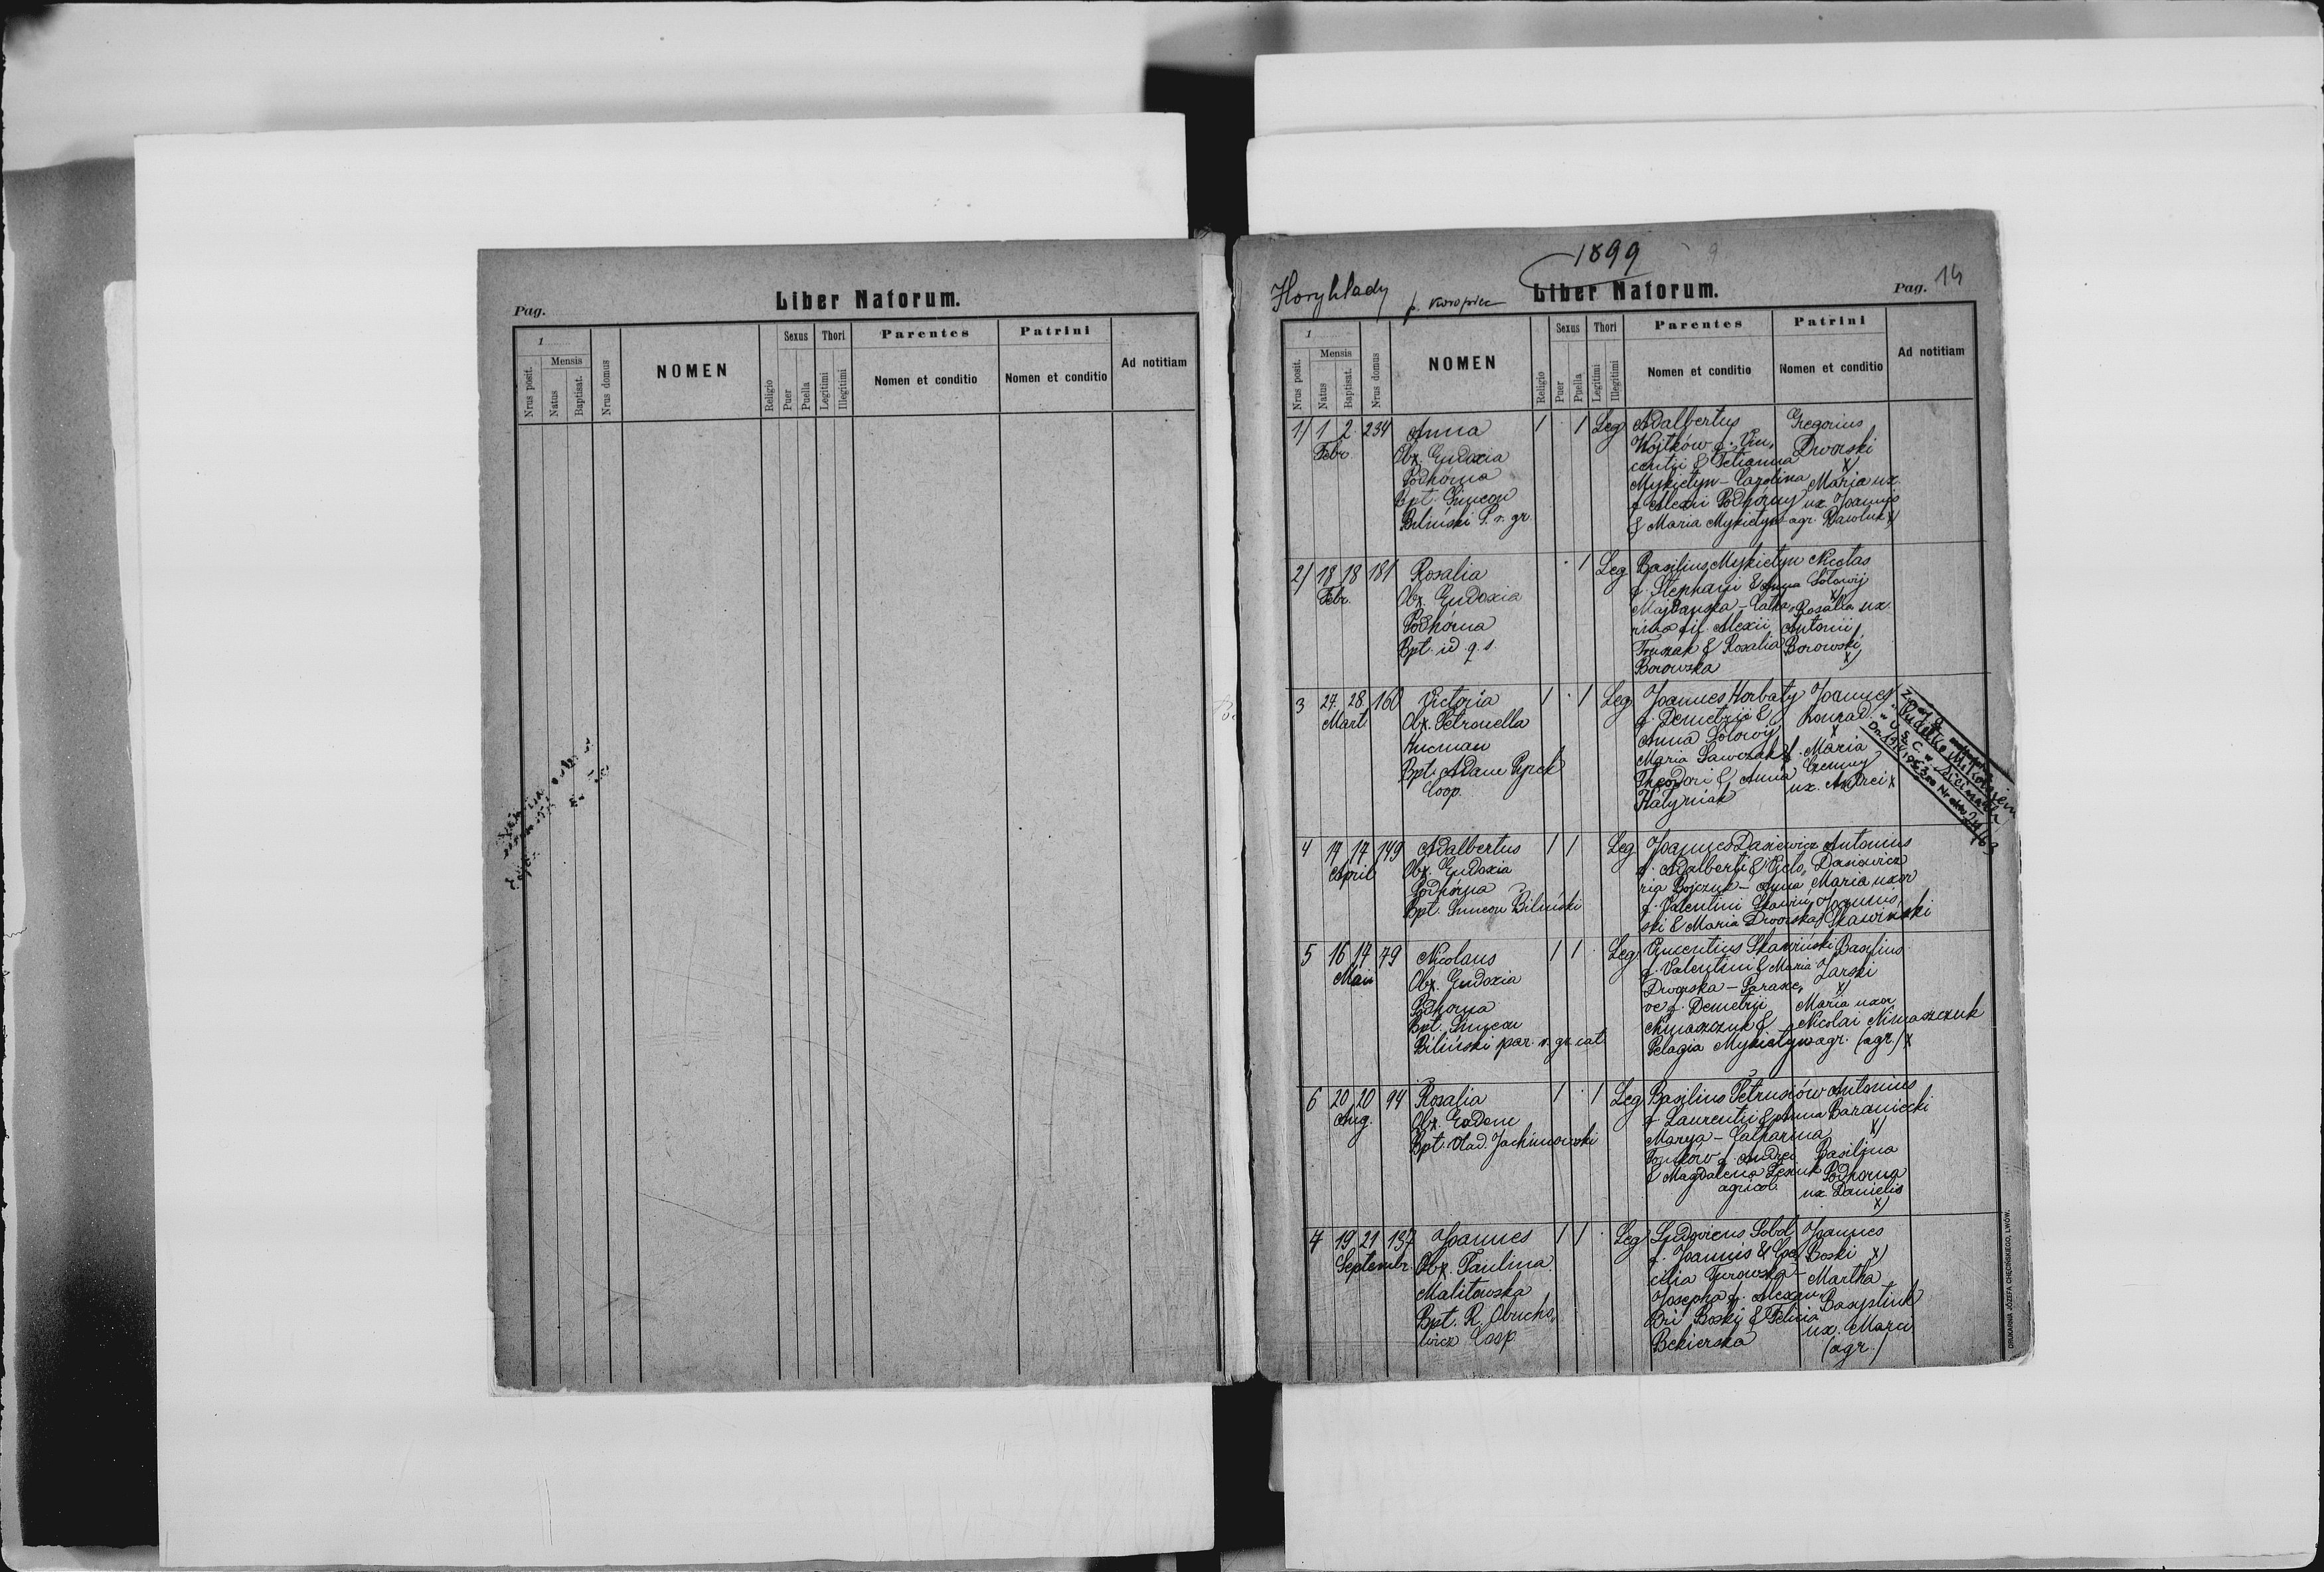 Pag.
Liber Natorum.
1
Nrus posit.
Mensis
Natus
Baptisat.
Nrus domus
NOMEN
Religio
Sexus
Puer
Puella
Thori
Legitimi
Illegitimi
Parentes
Nomen et conditio
Patrini
Nomen et conditio
Ad notitiam
1899
9
Horyhlady
p. Koropiec
Liber Natorum.
Pag. 14
1
Nrus posit.
Mensis
Natus
Baptisat.
Nrus domus
NOMEN
Religio
Sexus
Puer
Puella
Thori
Legitimi
Illegitimi
Parentes
Nomen et conditio
Patrini
Nomen et conditio
Ad notitiam
1/ 1 2 234
Febr.
Anna
Obx. Eudoxia
Podhórna
Bpt. Simeon
Biliński P. r. gr.
1 1 Leg
Adalbertus
Wojtków f. Vin„
centii & Tetianna
Mykietyn – Carolina
f. Alexii Podhórny
& Maria Mykietyn agr.
Gregorius
Dworski
x)
Maria ux.
ux. Joannis
Pawluk x)
2/ 18 18 181
Febr.
Rosalia
Obx. Eudoxia
Podhórna
Bpt. id q. s.
1 Leg
Basilius Mykietyn
f. Stephani & Anna
Majdanska – Catha„
rina fil. Alexii
& Rosalia
Borowska
Nicetas
Sołowij
x)
Rosalia ux.
Antonii
Borowski
x)
3 27 28 160
Mart
Victoria
Obx. Petronella
Hucman
Bpt. Adam Pyrek
Coop.
1 1 Leg
Joannes Horbaty
f. Demetrii &
Anna Sołowij
Maria Sawczak f.
Theodori & Anna
Hałyniak
Joannes
Konrad
x
Maria
ux. Andrei x
4 17 17 149
April
Adalbertus
Obx. Eudoxia
Podhórna
Bpt. Simeon Biliński
1 1 Leg
Joannes Dasiewicz
f. Adalberti &
ria Bojczuk – Anna
f. Valentini Skawiń„
ski & Maria Dworska
Antonius
Dasiewicz
Maria uxor
Joannis
Skawiński
5 16 17 79
Maii
Nicolaus
Obx. Eudoxia
Podhorna
Bpt. Simeon
Biliński par. r. gr. cat.
1 1 Leg
Vincentius Skawiński
f. Valentini & Maria
Dworska – Parasc„
ve f. Demetrii
Nimaszczuk &
Pelagia Mykietyn agr.
Basilius
Jarski
x)
Maria uxor
Nicolai Nimaszczuk
(agr.) x
6 20 20 94
Aug.
Rosalia
Obx. Eadem
Bpt. Vlad. Jachimowski
1 1 Leg
Basilius Petrusiów
f. Laurentii & Anna
Marya – Catharina
f. Andrei
& Magdalena
agricol.
Antonius
Baraniecki
x)
Basilina
Podhorna
ux. Danielis
x)
7 19 21 137
Septembr.
Joannes
Obx. Paulina
Malitowska
Bpt. R. Obucho„
wicz Coop.
1 1 Leg
Ludovicus Sobol
f. Joannis & Cae„
cilia Turowska –
Josepha f. Alexan„
dri Boski & Felicia
Bekierska
Joannes
Boski x)
Martha
Basystiuk
ux. Marci
(agr.)
DRUKARNIA JÓZEFA CHĘCIŃSKIEGO, LWÓW.